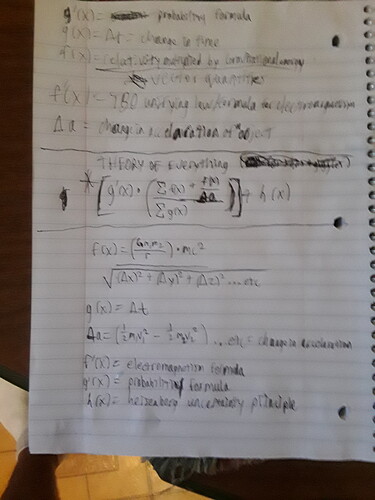 g'(x) = probability formula
g(x) = Δt = change in time
= relativity multiplied by gravitational energy
vector quantities
f'(x) = TBD unifying law/formula for electromagnetism
Δa = change in acceleration of object
THEORY OF everything
* [g'(x) · (Σ f(x) + f'(x)/Δa / Σ g(x))] + h(x)
f(x) = (Gm₁m₂/r) · mc²
√(Δx)² + (Δy)² + (Δz)² ... etc
g(x) = Δt
Δa = (½m₁v₁² - ½m₂v₂²) ... etc = change in acceleration
f'(x) = electromagnetism formula
g'(x) = probability formula
h(x) = heisenberg uncertainty principle